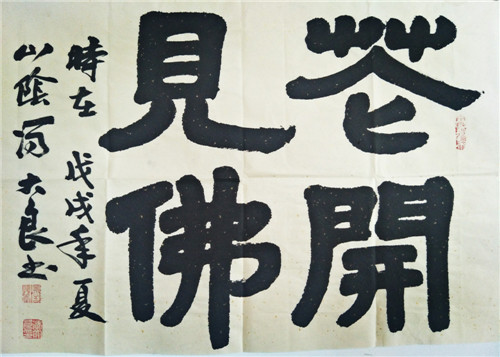 花開
見佛
時在 戊戌年夏
山陰馮大良书